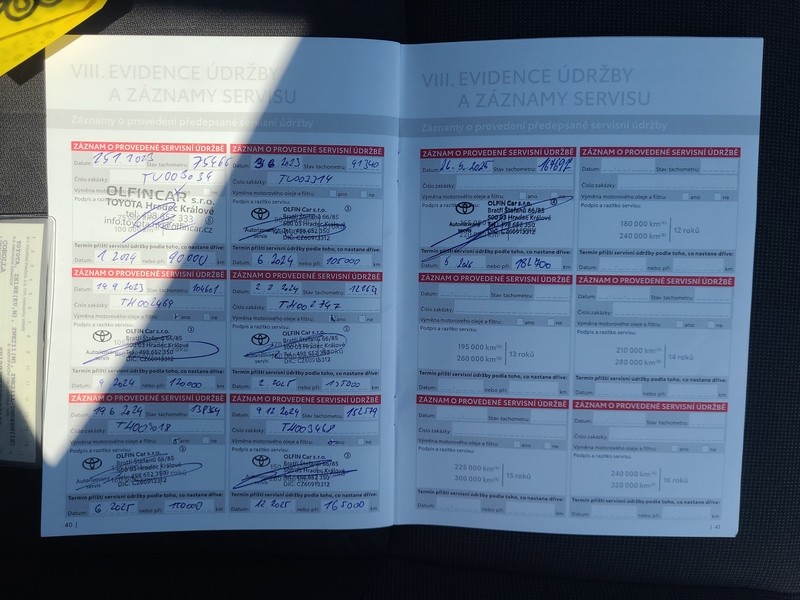 VIII. EVIDENCE ÚDRŽBY
A ZÁZNAMY SERVISU
Záznamy o provedení předepsané servisní údržby
ZÁZNAM O PROVEDENÉ SERVISNÍ ÚDRŽBĚ
Datum: Stav tachometru: 75466 km
Číslo zakázky:
Výměna motorového oleje a filtru: ano ne
Podpis a razítko
OLFINCAR s.r.o.
TOYOTA Hradec Králové
Termín příští servisní údržby podle toho, co nastane dříve:
Datum: 1 2024 nebo při: 90000 km
ZÁZNAM O PROVEDENÉ SERVISNÍ ÚDRŽBĚ
Datum: 2023 Stav tachometru: 91340
Číslo zakázky: TU002314
Výměna motorového oleje a filtru: ano ne
Podpis a razítko servisu:
OLFIN Car s.r.o.
Bratří Štefanů 66/85
500 03 Hradec Králové
DIČ: CZ60913312
Termín příští servisní údržby podle toho, co nastane dříve:
Datum: 6 2024 nebo při: 105000 km
ZÁZNAM O PROVEDENÉ SERVISNÍ ÚDRŽBĚ
Datum: 19 9 2023 Stav tachometru: 104601
Číslo zakázky: TH002469
Výměna motorového oleje a filtru: ano ne
Podpis a razítko servisu:
OLFIN Car s.r.o.
Bratří Štefanů 66/85
500 03 Hradec Králové
Tel.: 498 652 350
DIČ: CZ60913312
Termín příští servisní údržby podle toho, co nastane dříve:
Datum: 9 2024 nebo při: 120000 km
ZÁZNAM O PROVEDENÉ SERVISNÍ ÚDRŽBĚ
Datum: 2 2 2024 Stav tachometru:
Číslo zakázky:
Výměna motorového oleje a filtru: ano ne
Podpis a razítko servisu:
OLFIN Car s.r.o.
Bratří Štefanů 66/85
500 03 Hradec Králové
Tel.: 498 652 350
DIČ: CZ60913312
Termín příští servisní údržby podle toho, co nastane dříve:
Datum: 2 2025 nebo při: 135000 km
ZÁZNAM O PROVEDENÉ SERVISNÍ ÚDRŽBĚ
Datum: 19 6 2024 Stav tachometru:
Číslo zakázky:
Výměna motorového oleje a filtru: ano ne
Podpis a razítko servisu:
OLFIN Car s.r.o.
Bratří Štefanů 66/85
500 03 Hradec Králové
Tel.: 498 652 350
DIČ: CZ60913312
Termín příští servisní údržby podle toho, co nastane dříve:
Datum: 6 2025 nebo při: km
ZÁZNAM O PROVEDENÉ SERVISNÍ ÚDRŽBĚ
Datum: 9 12 2024 Stav tachometru: 152579
Číslo zakázky: TH003468
Výměna motorového oleje a filtru: ano ne
Podpis a razítko servisu:
OLFIN Car s.r.o.
Bratří Štefanů 66/85
500 03 Hradec Králové
Tel.: 498 652 350
DIČ: CZ60913312
Termín příští servisní údržby podle toho, co nastane dříve:
Datum: 12 2025 nebo při: 165000 km
40 |
VIII. EVIDENCE ÚDRŽBY
A ZÁZNAMY SERVISU
Záznamy o provedení předepsané servisní údržby
ZÁZNAM O PROVEDENÉ SERVISNÍ ÚDRŽBĚ
Datum: 2025 Stav tachometru:
Číslo zakázky:
Výměna motorového oleje a filtru: ano ne
Podpis a razítko servisu:
OLFIN Car s.r.o.
Bratří Štefanů 66/85
500 03 Hradec Králové
Tel.: 498 652 350
DIČ: CZ60913312
Termín příští servisní údržby podle toho, co nastane dříve:
Datum: nebo při: km
ZÁZNAM O PROVEDENÉ SERVISNÍ ÚDRŽBĚ
Datum: Stav tachometru: km
Číslo zakázky:
Výměna motorového oleje a filtru: ano ne
Podpis a razítko servisu:
180 000 km
240 000 km
12 roků
Termín příští servisní údržby podle toho, co nastane dříve:
Datum: nebo při: km
ZÁZNAM O PROVEDENÉ SERVISNÍ ÚDRŽBĚ
Datum: Stav tachometru: km
Číslo zakázky:
Výměna motorového oleje a filtru: ano ne
Podpis a razítko servisu:
195 000 km
260 000 km
13 roků
Termín příští servisní údržby podle toho, co nastane dříve:
Datum: nebo při: km
ZÁZNAM O PROVEDENÉ SERVISNÍ ÚDRŽBĚ
Datum: Stav tachometru: km
Číslo zakázky:
Výměna motorového oleje a filtru: ano ne
Podpis a razítko servisu:
210 000 km
280 000 km
14 roků
Termín příští servisní údržby podle toho, co nastane dříve:
Datum: nebo při: km
ZÁZNAM O PROVEDENÉ SERVISNÍ ÚDRŽBĚ
Datum: Stav tachometru: km
Číslo zakázky:
Výměna motorového oleje a filtru: ano ne
Podpis a razítko servisu:
225 000 km
300 000 km
15 roků
Termín příští servisní údržby podle toho, co nastane dříve:
Datum: nebo při: km
ZÁZNAM O PROVEDENÉ SERVISNÍ ÚDRŽBĚ
Datum: Stav tachometru: km
Číslo zakázky:
Výměna motorového oleje a filtru: ano ne
Podpis a razítko servisu:
240 000 km
320 000 km
16 roků
Termín příští servisní údržby podle toho, co nastane dříve:
Datum: nebo při: km
| 41
COROLLA